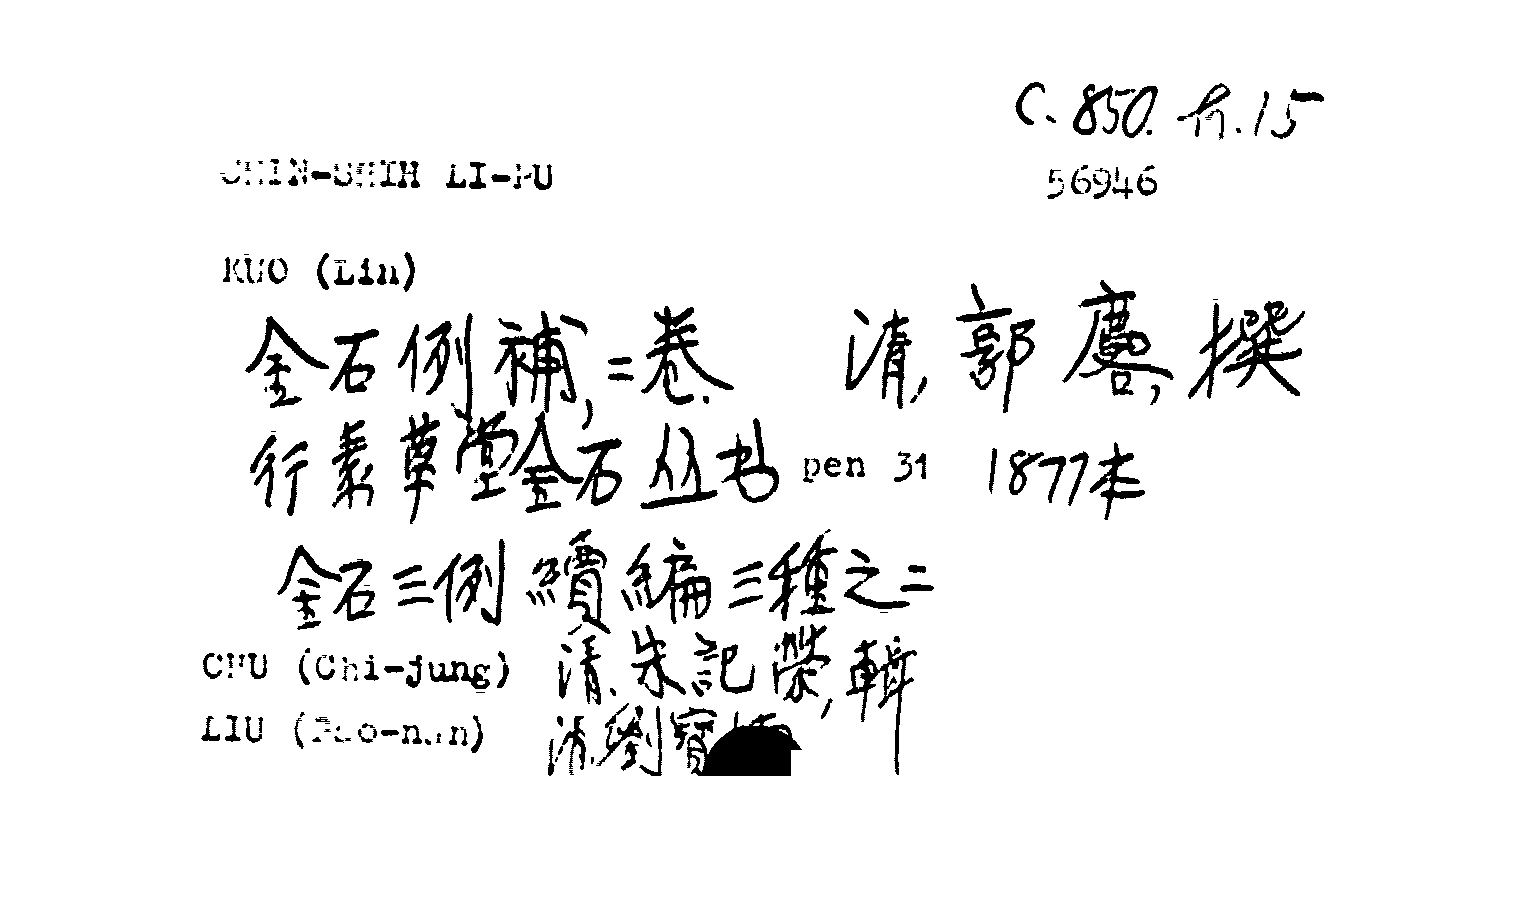 C. 850. .15
CHIN-SHIH LI-PU
56946
KUO (Lin)
金石例補,二卷. 清,郭麐,撰
行素草堂金石丛书 pen 31 1877本
金石三例續編三種之二
CHU (Chi-jung) 清.朱記榮,輯
LIU (Pao-nan) 清.劉寶